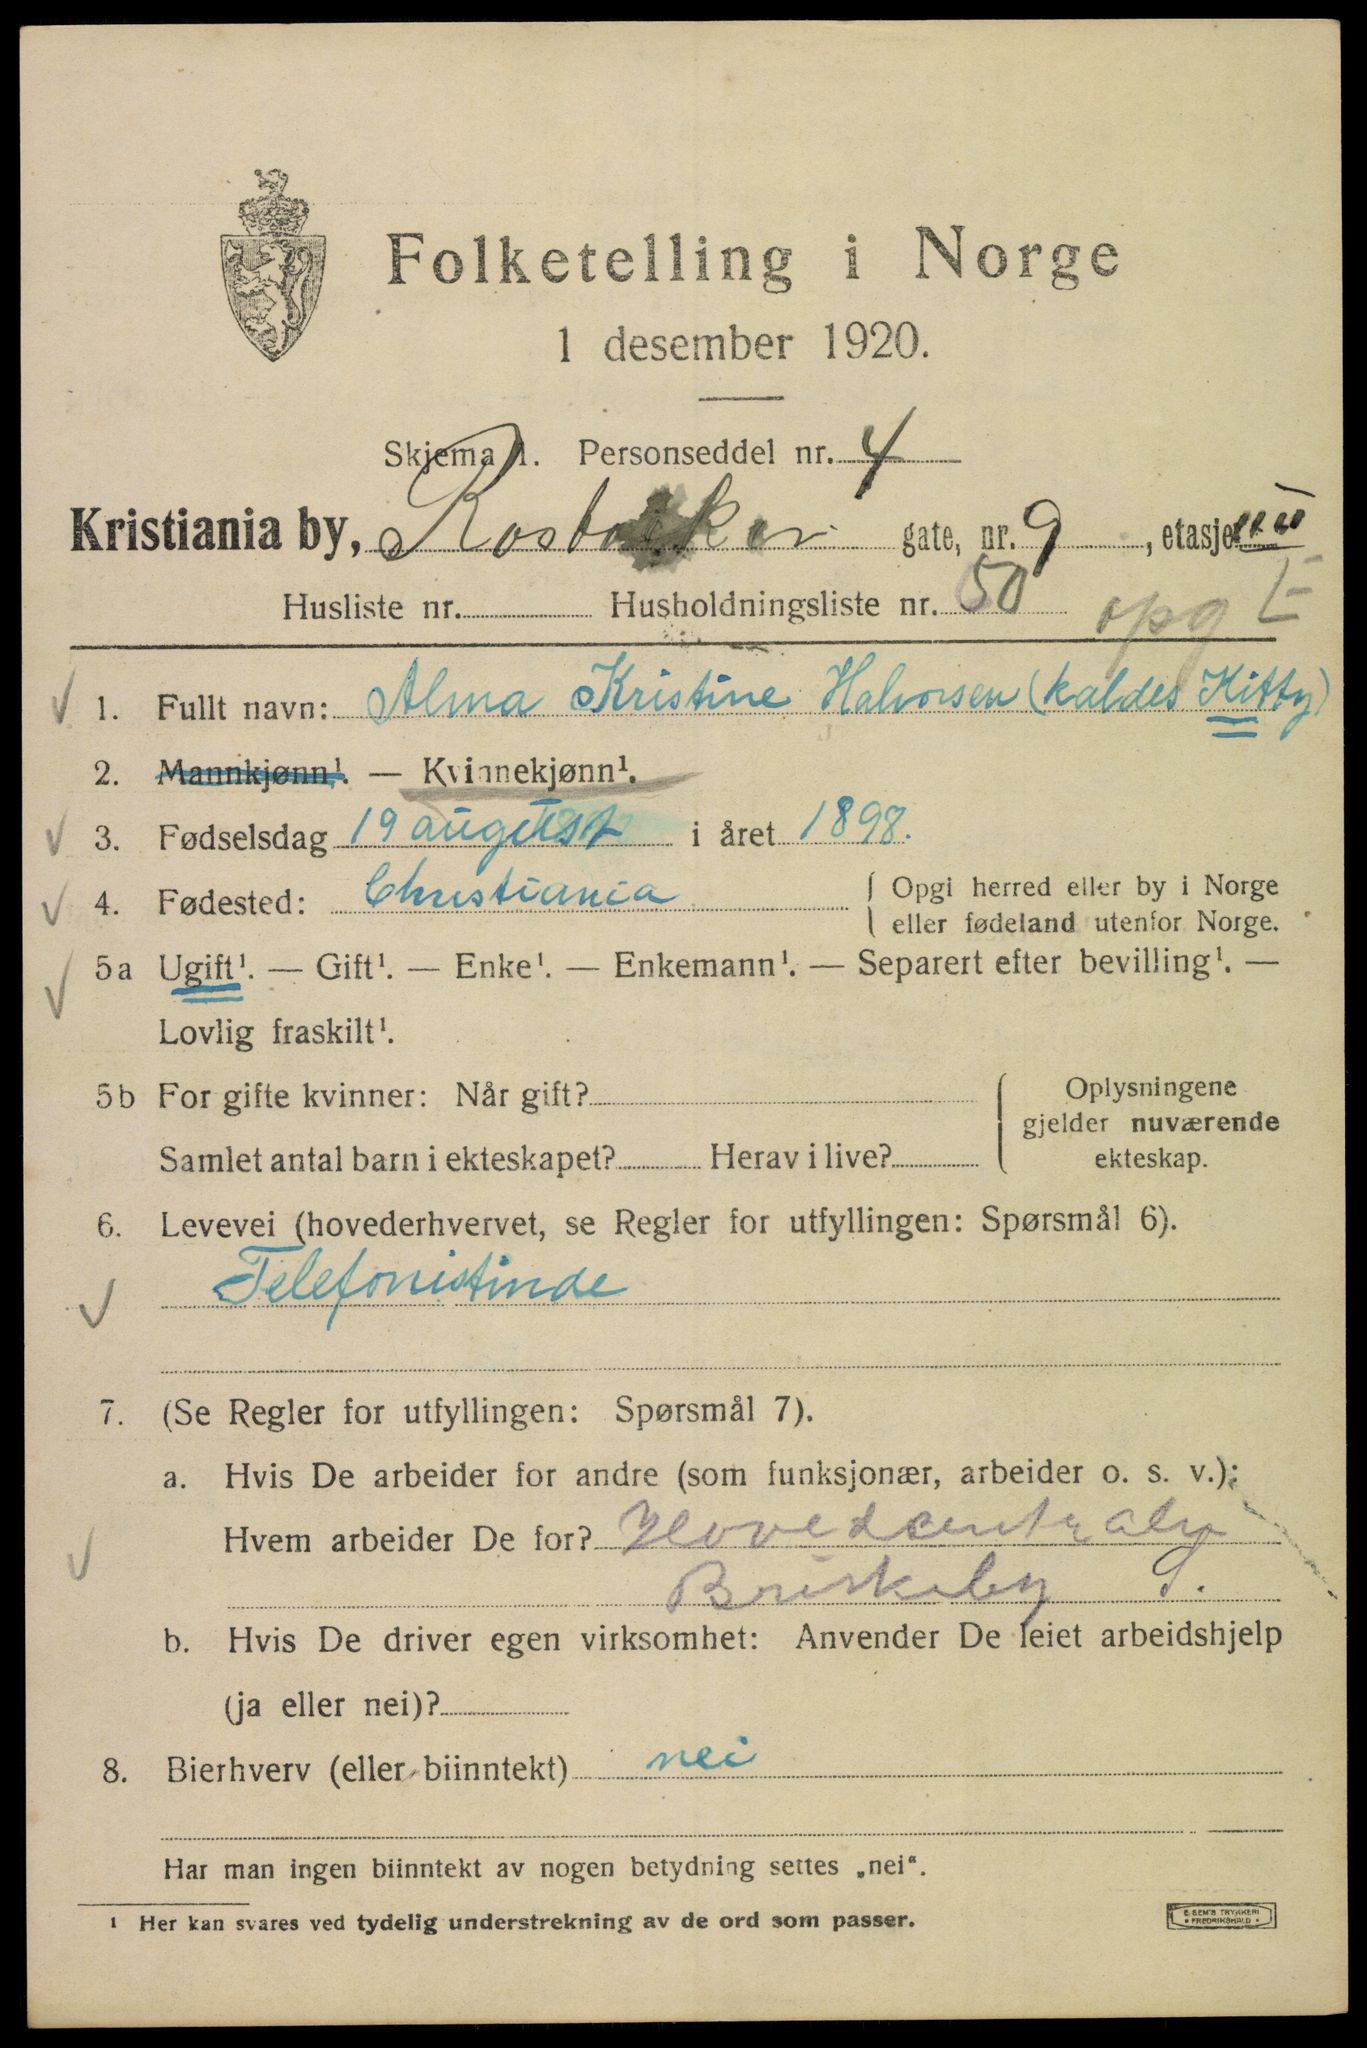 Folketelling i Norge
1 desember 1920.
Skjema 1. Personseddel nr. 4
Kristiania by, gate, nr. 9, etasje III
Husliste nr. Husholdningsliste nr. 50 opg I
1. Fullt navn: Alma Kristine Halvorsen (kaldes Kitty)
2. Mannkjønn¹. — Kvinnekjønn¹.
3. Fødselsdag 19 august i året 1898.
4. Fødested: Christiania { Opgi herred eller by i Norge
eller fødeland utenfor Norge.
5a Ugift¹. — Gift¹. — Enke¹. — Enkemann¹. — Separert efter bevilling¹. —
Lovlig fraskilt¹.
5b For gifte kvinner: Når gift?
Samlet antal barn i ekteskapet? Herav i live?
{ Oplysningene
gjelder nuværende
ekteskap.
6. Levevei (hovederhvervet, se Regler for utfyllingen: Spørsmål 6).
Telefonistinde
7. (Se Regler for utfyllingen: Spørsmål 7).
a. Hvis De arbeider for andre (som funksjonær, arbeider o. s. v.):
Hvem arbeider De for? Hovedcentralen
Briskeby S.
b. Hvis De driver egen virksomhet: Anvender De leiet arbeidshjelp
(ja eller nei)?
8. Bierhverv (eller biinntekt) nei
Har man ingen biinntekt av nogen betydning settes „nei“.
¹ Her kan svares ved tydelig understrekning av de ord som passer.
E. SEM'S TRYKKERI
• FREDRIKSHALD •